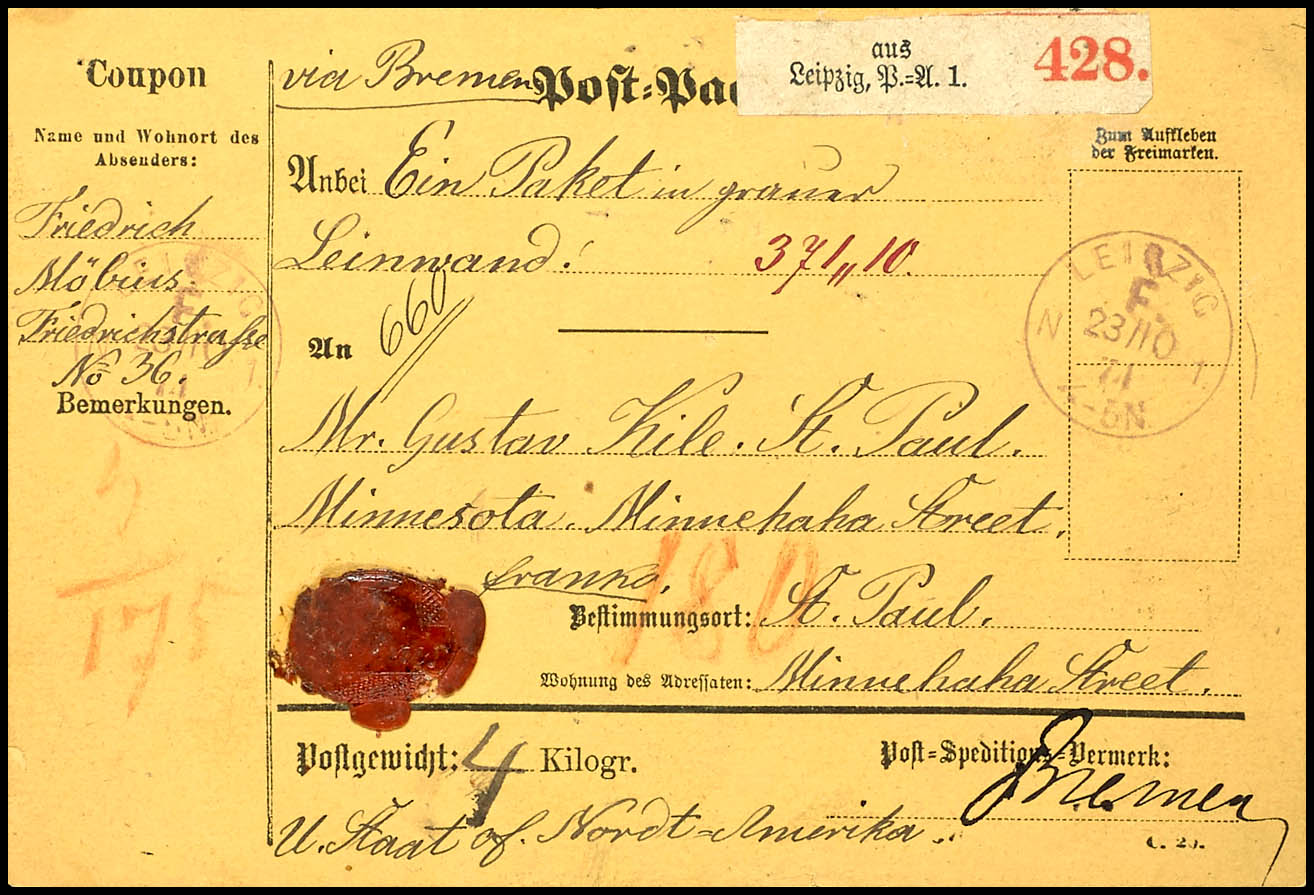 Coupon
Name und Wohnort des
Absenders:
Friedrich
Möbius.
Friedrichstrasse
No 36.
Bemerkungen.
175
via Bremen
Post=Pac
aus
Leipzig, P.=A. 1.
428.
Zum Aufkleben
der Freimarken.
Anbei Ein Paket in grauer
Leinwand.
371,,10.
660
An
LEIPZIG
F.
23/10
74
N 1.
-5N.
Mr. Gustav Kile. St. Paul.
Minnesota. Minnehaha Street.
franko.
180
Bestimmungsort: St. Paul.
Wohnung des Adressaten: Minnehaha Street.
Postgewicht: 4 Kilogr.
Post=Speditions=Vermerk:
Bremen
U. Staat of. Nordt=Amerika.
C. 29.